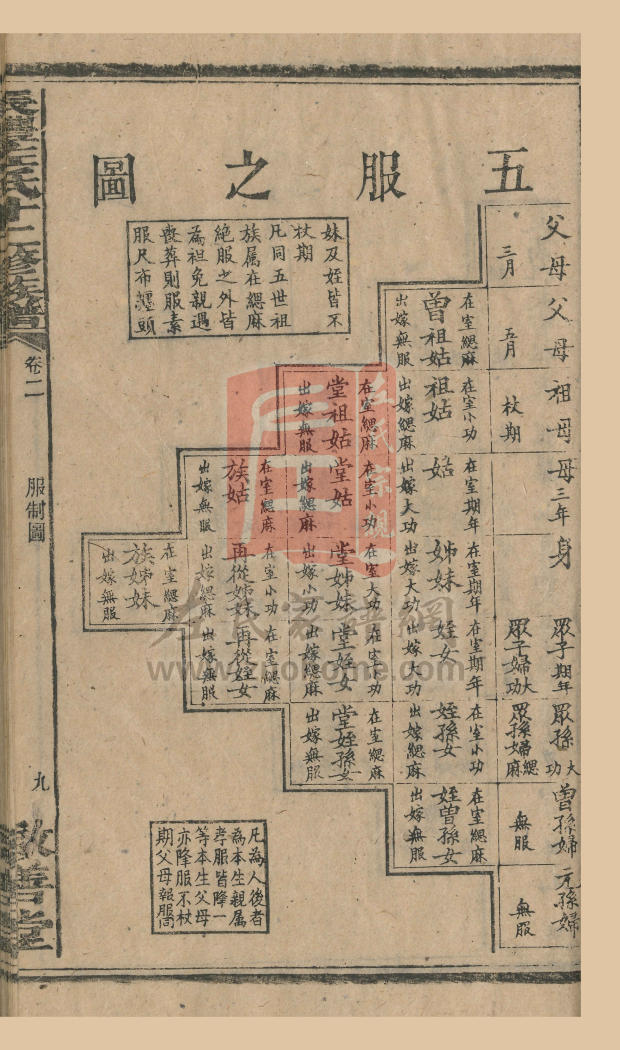 五服之圖
父母
三月
父母
五月
祖母
杖期
母三年
身
眾子期年
眾子婦大功
眾孫大功
眾孫婦緦麻
曾孫婦
無服
元孫婦
無服
在室緦麻
曾祖姑
出嫁無服
在室小功
祖姑
出嫁緦麻
在室期年
姑
出嫁大功
在室期年
姊妹
出嫁大功
在室期年
姪女
出嫁大功
在室小功
姪孫女
出嫁緦麻
在室緦麻
姪曾孫女
出嫁無服
在室緦麻
堂祖姑
出嫁無服
在室小功
堂姑
出嫁緦麻
在室大功
堂姊妹
出嫁小功
在室小功
堂姪女
出嫁緦麻
在室緦麻
堂姪孫女
出嫁無服
在室緦麻
族姑
出嫁無服
在室小功
再從姊妹
出嫁緦麻
在室緦麻
再從姪女
出嫁無服
在室緦麻
族姊妹
出嫁無服
妹及姪皆不
杖期
凡同五世祖
族属在緦麻
絕服之外皆
為袒免親遇
喪葬則服素
服尺布纏頭
凡為人後者
為本生親属
孝服皆降一
等本生父母
亦降服不杖
期父母報服同
氏十二修族譜
卷二
服制圖
九
堂
www.zupukome.com